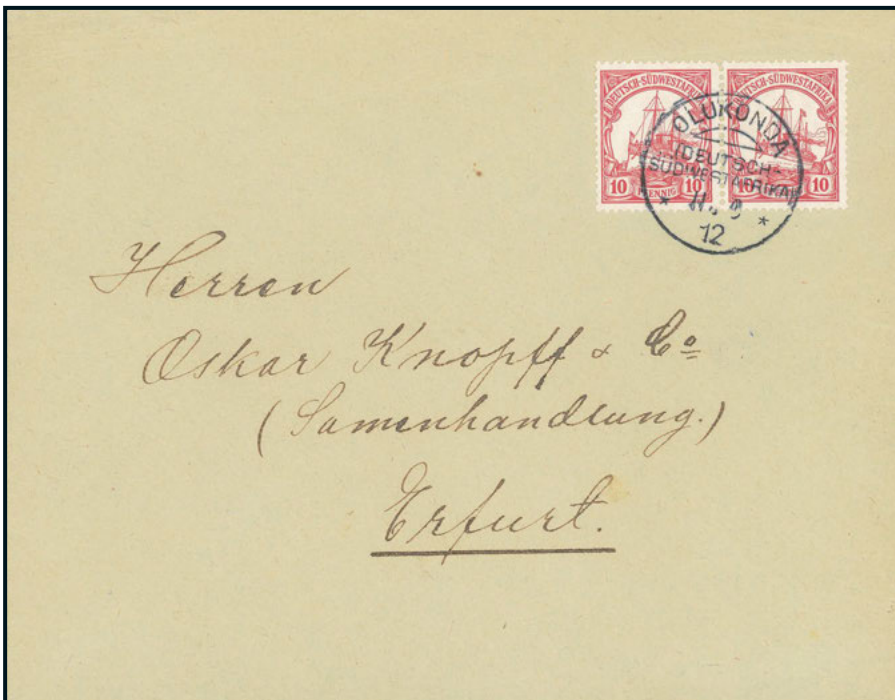 DEUTSCH-SÜDWESTAFRIKA
10 PFENNIG 10
DEUTSCH-SÜDWESTAFRIKA
10 10
OLUKONDA
(DEUTSCH-
SÜDWESTAFRIKA)
* *
12
Herren
Oskar Knopff & Co
(Samenhandlung.)
Erfurt.